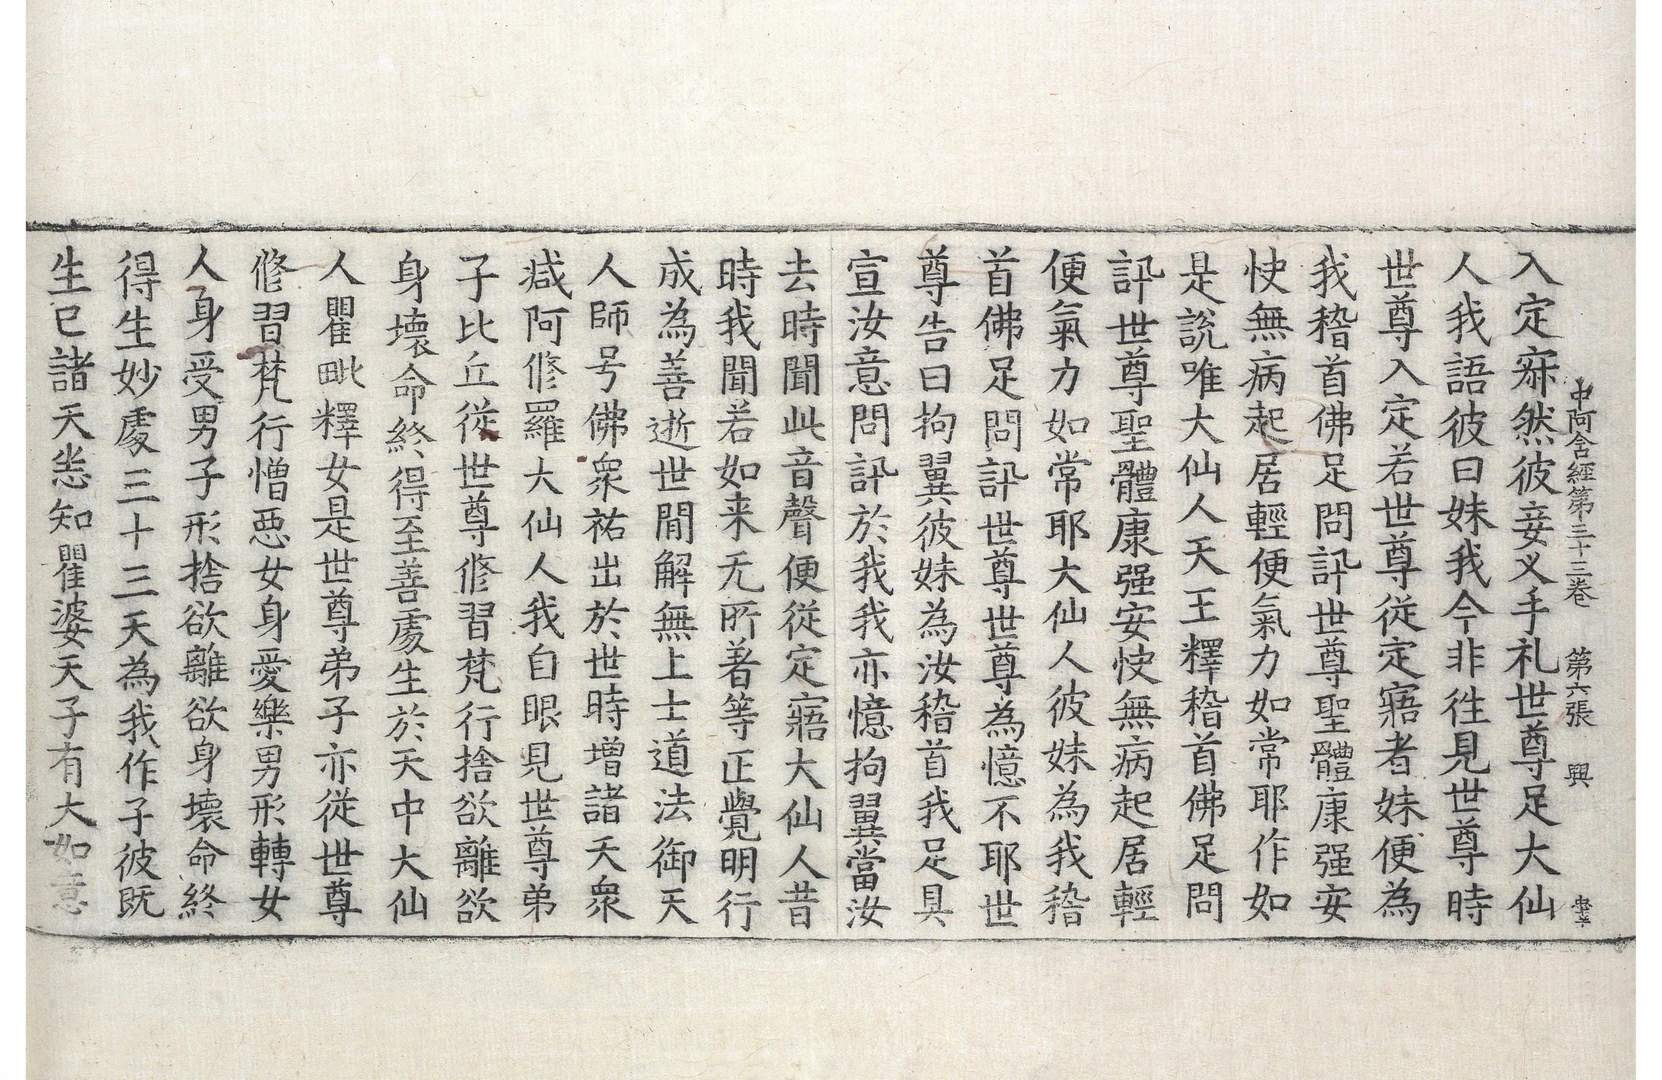 中阿含經第三十三卷 第六張 興
入定寂然彼妾叉手礼世尊足大仙
人我語彼曰妹我今非徃見世尊時
世尊入定若世尊從定寤者妹便為
我稽首佛足問訊世尊聖體康强安
快無病起居輕便氣力如常耶作如
是說唯大仙人天王釋稽首佛足問
訊世尊聖體康强安快無病起居輕
便氣力如常耶大仙人彼妹為我稽
首佛足問訊世尊世尊為憶不耶世
尊告曰拘翼彼妹為汝稽首我足具
宣汝意問訊於我我亦憶拘翼當汝
去時聞此音聲便從定寤大仙人昔
時我聞若如来无所著等正覺明行
成為善逝世間解無上士道法御天
人師号佛衆祐出於世時增諸天衆
減阿修羅大仙人我自眼見世尊弟
子比丘從世尊修習梵行捨欲離欲
身壞命終得至善處生於天中大仙
人瞿毗釋女是世尊弟子亦從世尊
修習梵行憎惡女身愛樂男形轉女
人身受男子形捨欲離欲身壞命終
得生妙處三十三天為我作子彼既
生已諸天悉知瞿婆天子有大如意